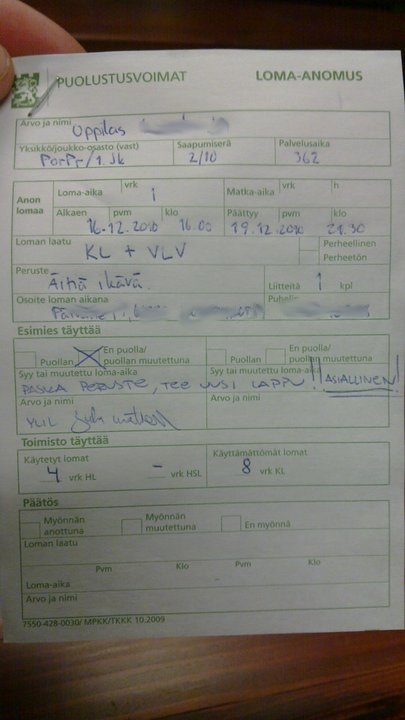 PUOLUSTUSVOIMAT LOMA-ANOMUS
Arvo ja nimi
Oppilas
Yksikkö/joukko-osasto (vast) Saapumiserä Palvelusaika
PorPr/1.Jk 2/10 362
Anon lomaa Loma-aika vrk 1 Matka-aika vrk h
Alkaen pvm klo Päättyy pvm klo
16.12.2010 16.00 19.12.2010 21.30
Loman laatu Perheellinen
KL + VLV Perheetön
Peruste
Äitiä ikävä. Liitteitä 1 kpl
Osoite loman aikana Puhelin
Esimies täyttää
Puollan En puolla/ puollan muutettuna Puollan En puolla/ puollan muutettuna
Syy tai muutettu loma-aika Syy tai muutettu loma-aika
PASKA PERUSTE, TEE UUSI LAPPU!! ASIALLINEN!
Arvo ja nimi Arvo ja nimi
YLIL
Toimisto täyttää
Käytetyt lomat Käyttämättömät lomat
4 vrk HL – vrk HSL 8 vrk KL
Päätös
Myönnän anottuna Myönnän muutettuna En myönnä
Loman laatu
Pvm Klo Pvm Klo
Loma-aika
Arvo ja nimi
7550-428-0030/ MPKK/TKKK 10.2009